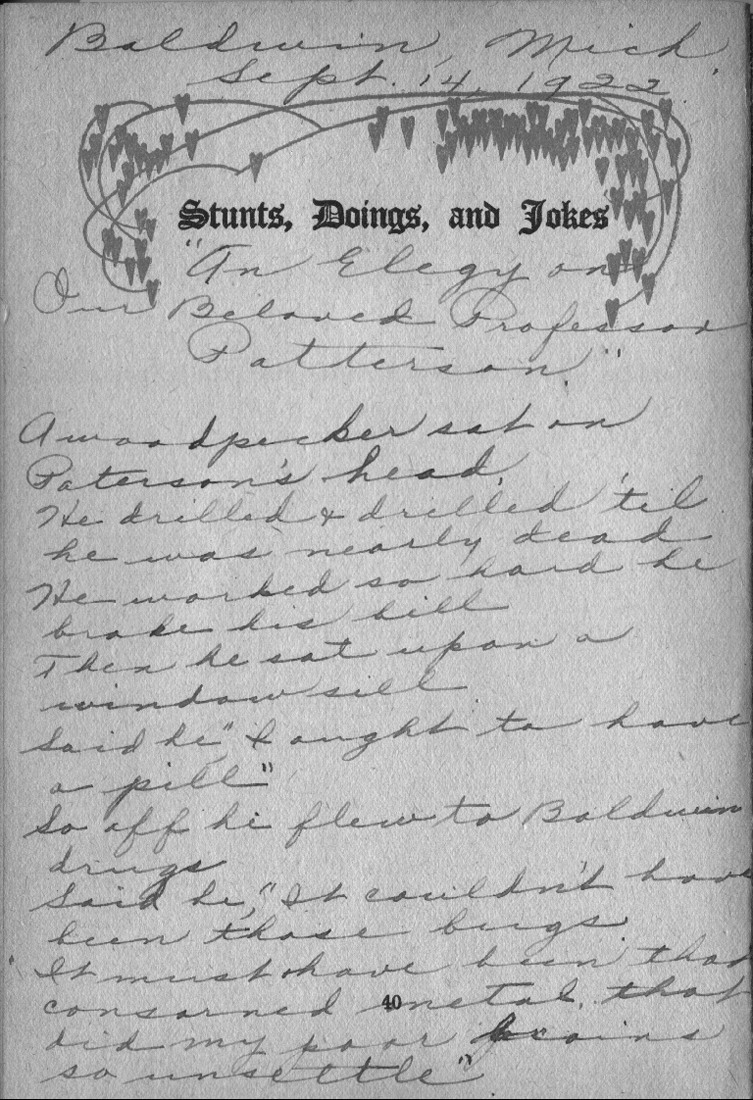 Baldwin, Mich.
Sept. 14, 1922
Stunts, Doings, and Jokes
"An Elegy on
Our Beloved Professor
Patterson."
A woodpecker sat on
Paterson's head,
He drilled & drilled 'til
he was nearly dead
He worked so hard he
broke his bill
Then he sat upon a
window sill
Said he "I ought to have
a pill"
So off he flew to Baldwin
drugs
Said he, "It couldn't have
been those bugs.
It must have been that
consarned metal, that
40
did my poor brains
so unsettle"